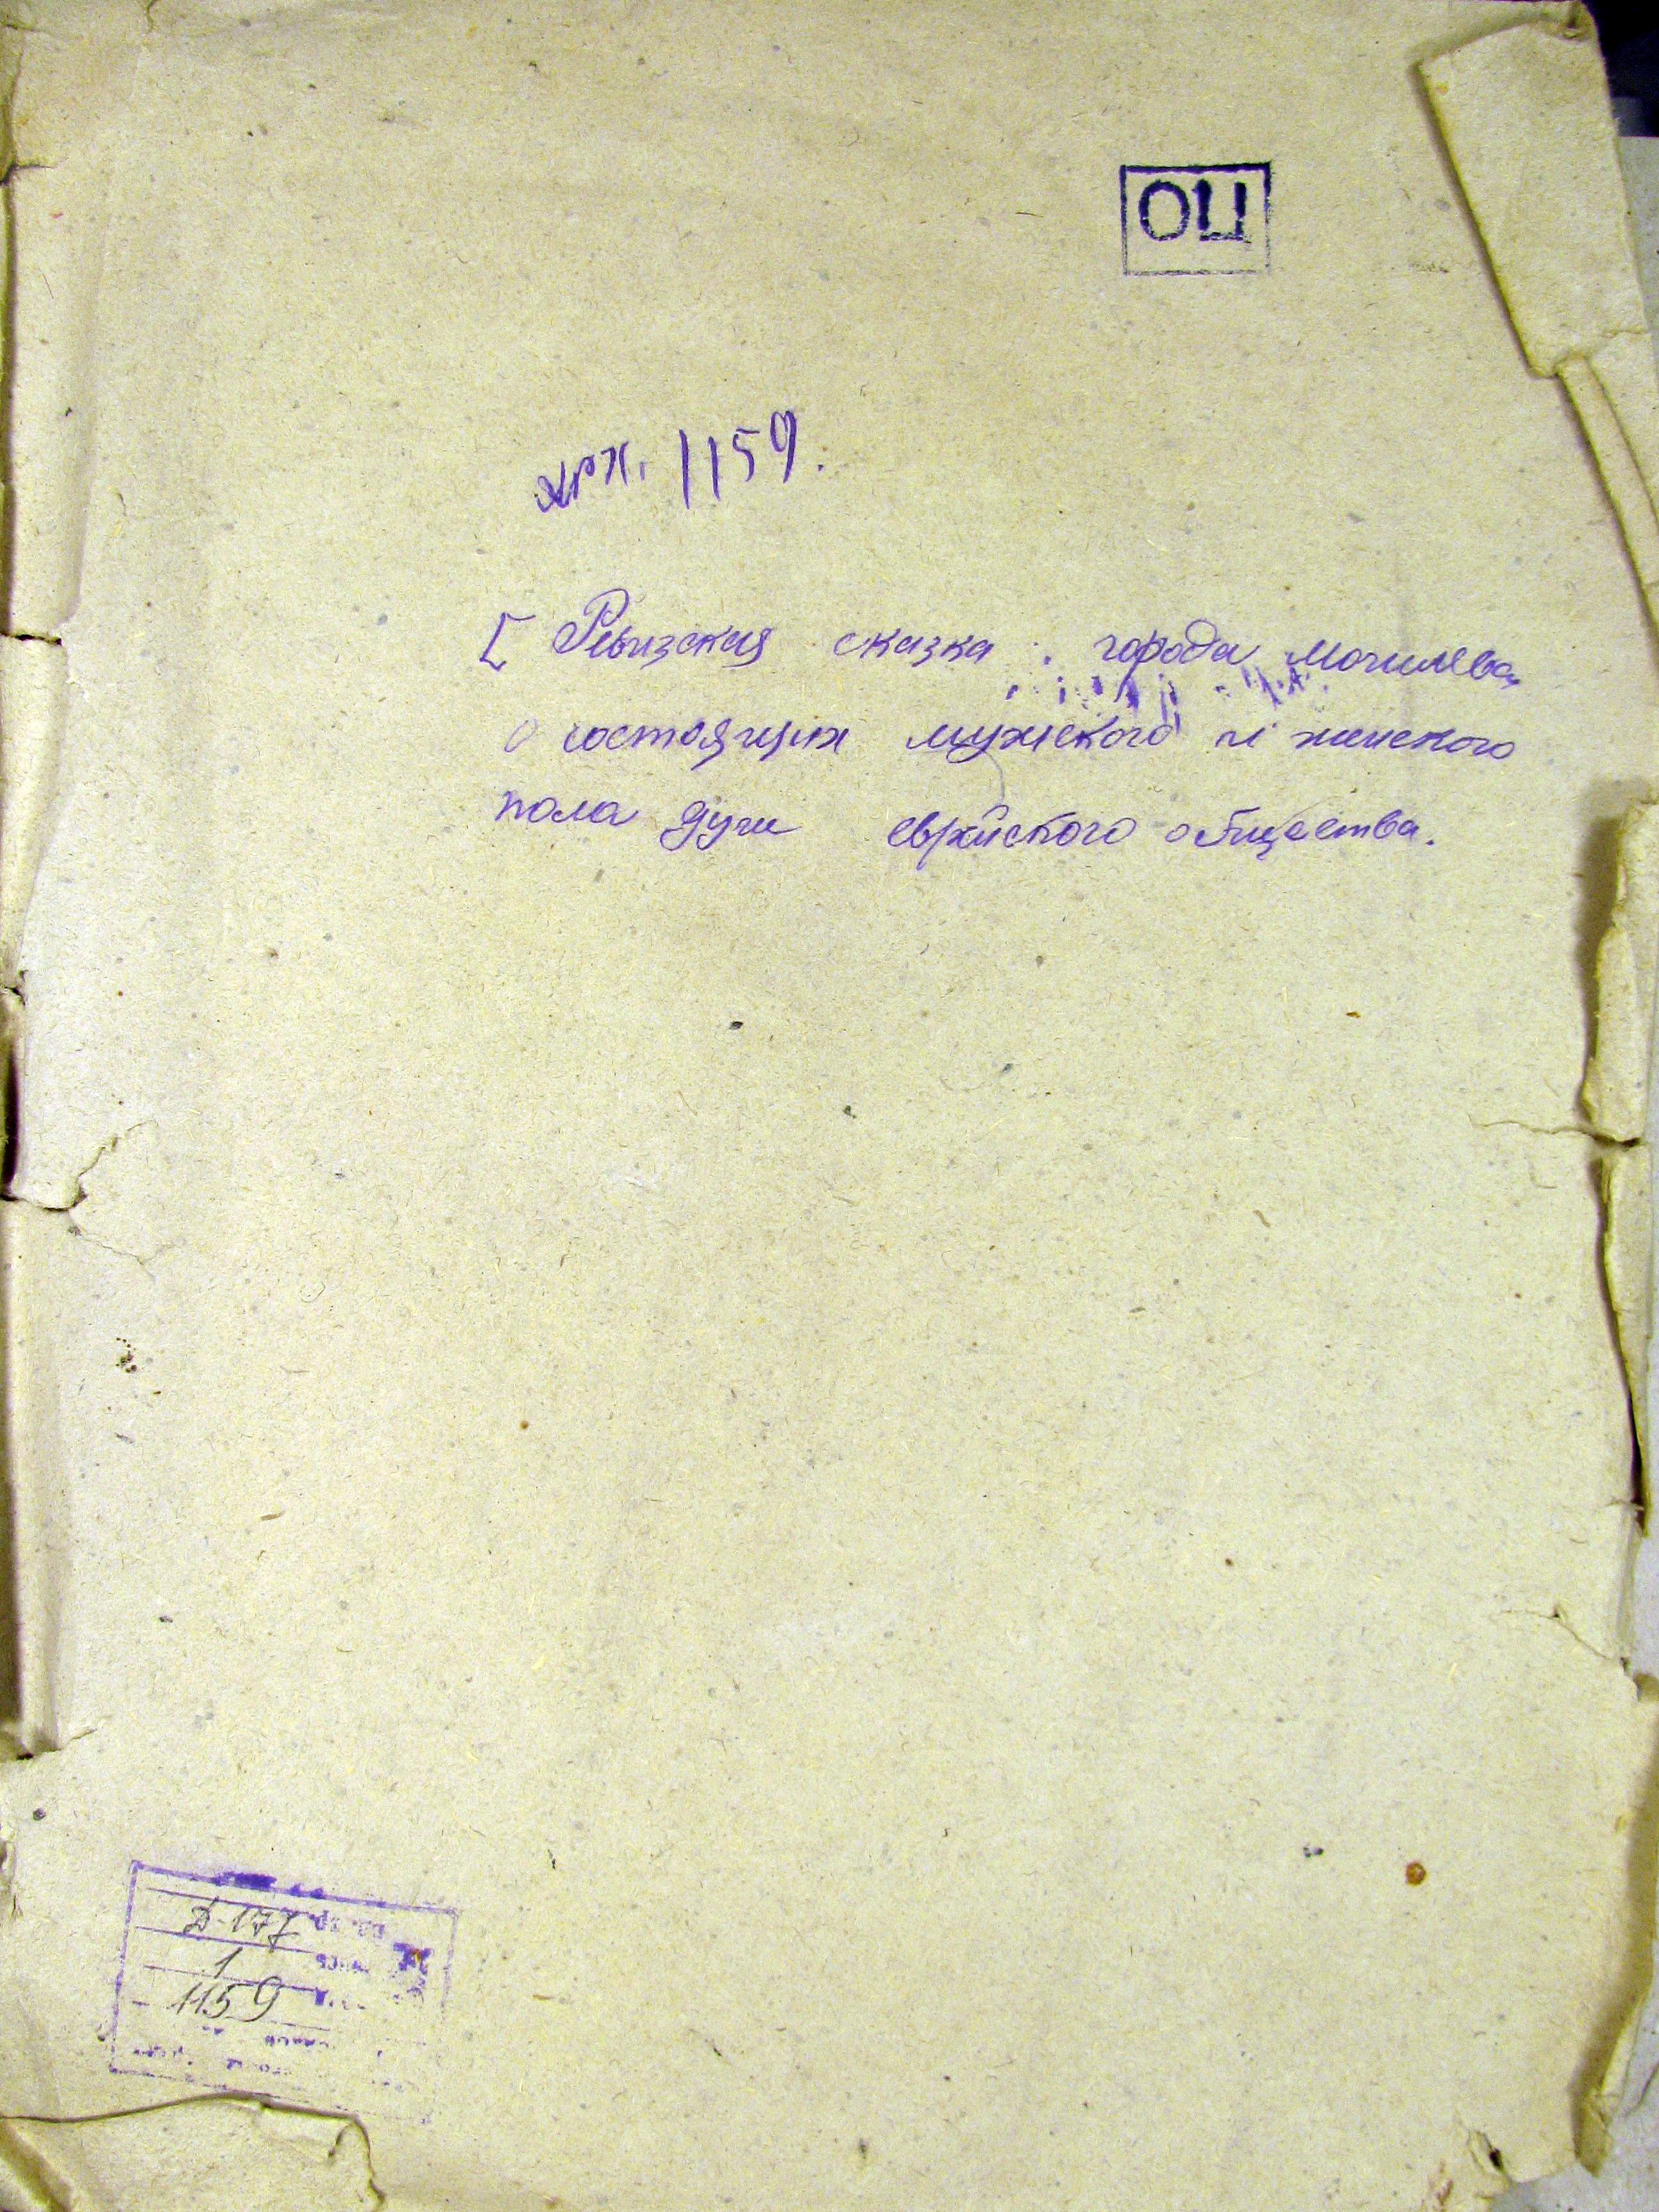 ОЦ
арх. 1159.
[ Ревизская сказка города Могилева
о состоящих мужского и женского
пола душ еврейского общества.
Д-177
1
1159